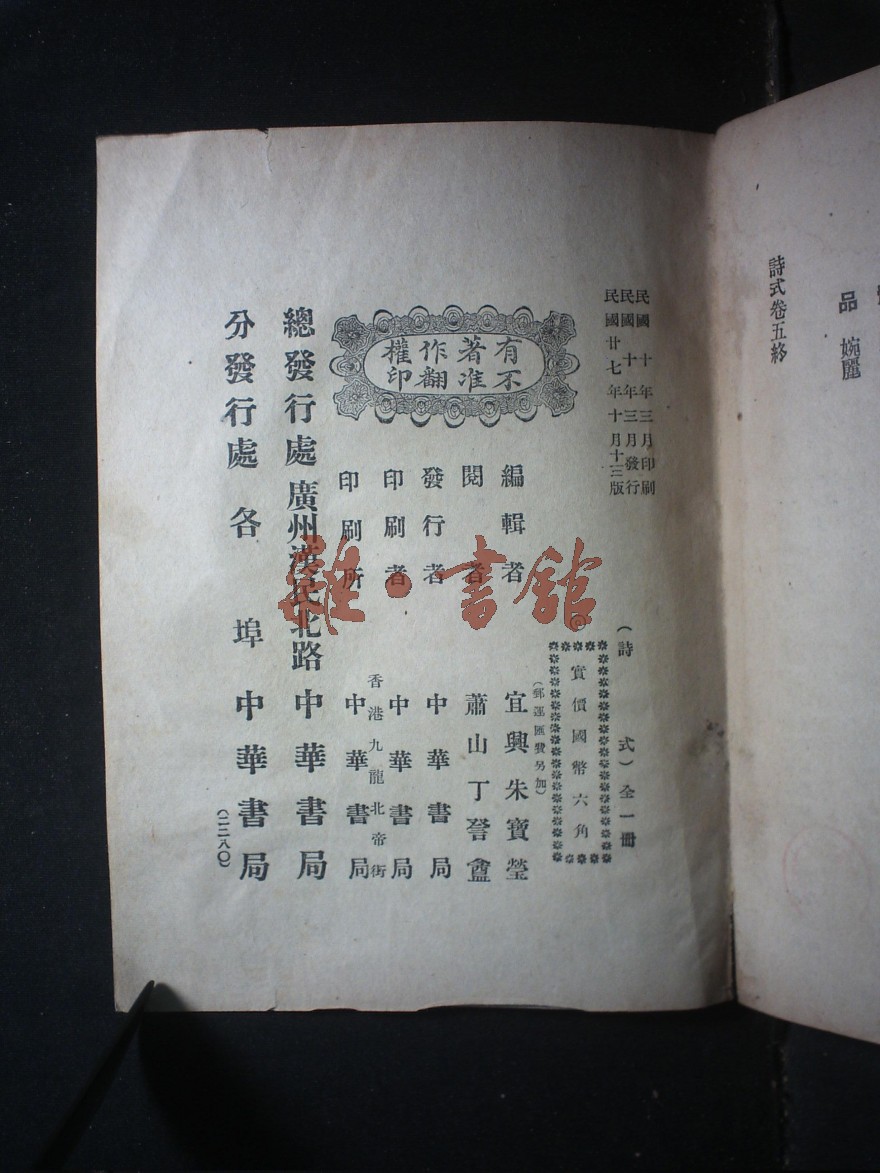 品 婉麗
詩式卷五終
民國十年三月印刷
民國十年三月發行
民國廿七年十月十三版
(詩式)全一冊
實價國幣六角
(郵運匯費另加)
編輯者 宜興朱寶瑩
閱者 蕭山丁
發行者 中華書局
印刷者 中華書局
香港九龍北帝街
印刷所 中華書局
有著作權
不准翻印
總發行處 廣州漢民北路 中華書局
分發行處 各埠 中華書局
(二二八〇)
雜·書館